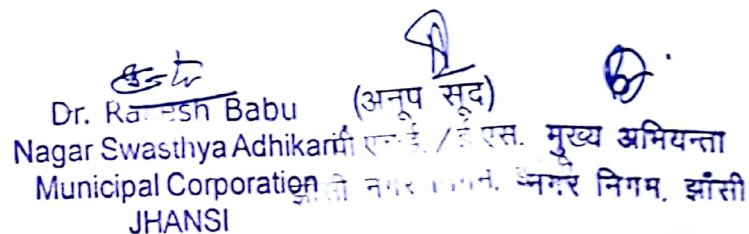 Dr. Rakesh Babu
Nagar Swasthya Adhikari
Municipal Corporation
JHANSI
(अनूप सूद)
एस.
नगर
मुख्य अभियन्ता
नगर निगम, झाँसी